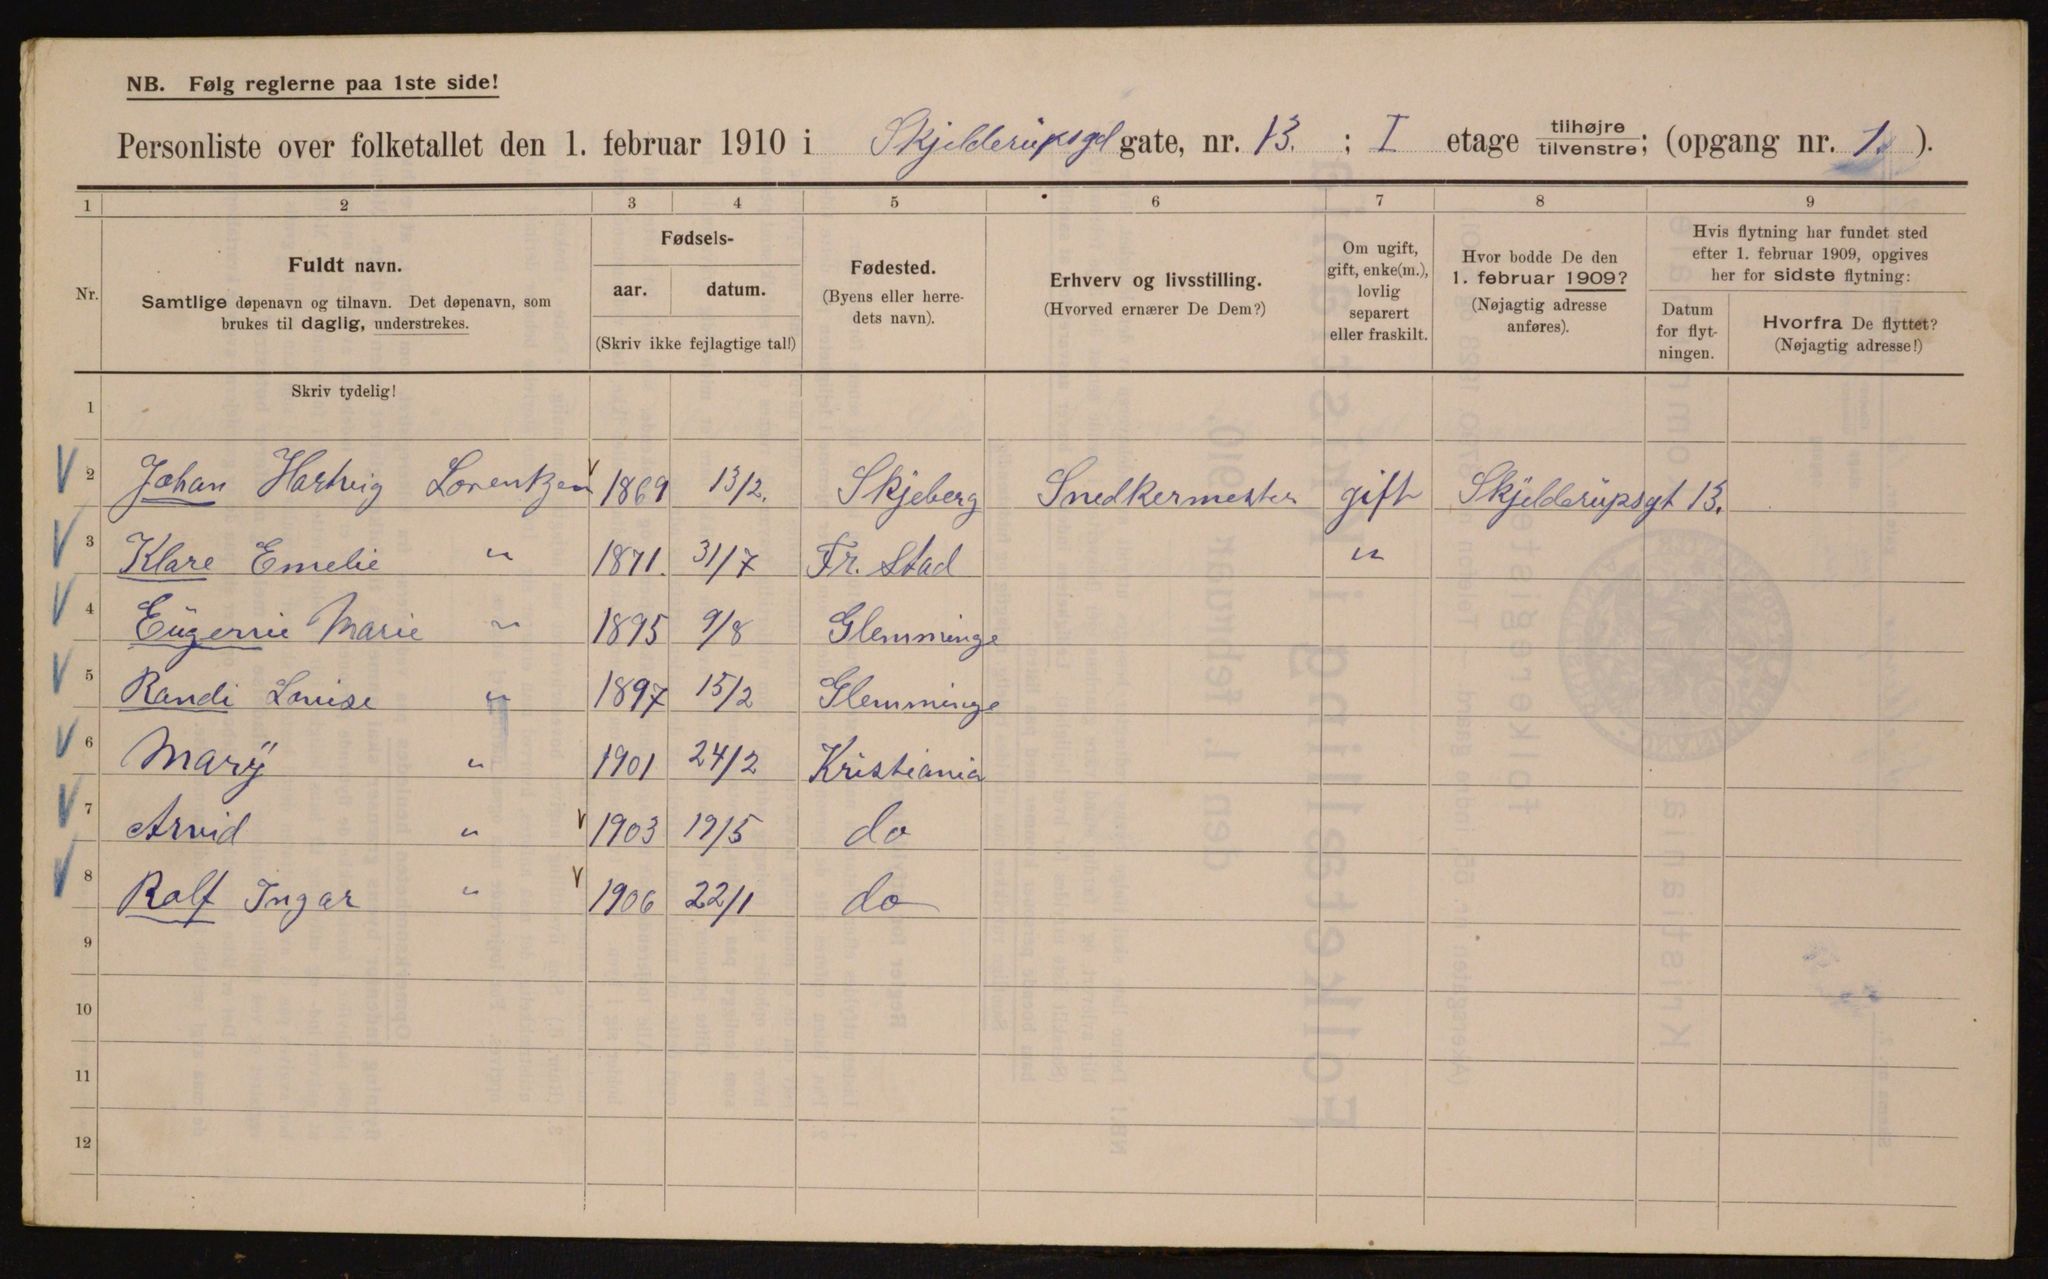 NB. Følg reglerne paa 1ste side!
Personliste over folketallet den 1. februar 1910 i Skjelderupsgt gate, nr. 13. ; I etage tilhøjre/tilvenstre; (opgang nr. 1. ).
1 2 3 4 5 6 7 8 9
Nr.
Fuldt navn.
Samtlige døpenavn og tilnavn. Det døpenavn, som
brukes til daglig, understrekes.
Fødsels-
aar. datum.
(Skriv ikke fejlagtige tal!)
Fødested.
(Byens eller herre-
dets navn).
Erhverv og livsstilling.
(Hvorved ernærer De Dem?)
Om ugift,
gift, enke(m.),
lovlig
separert
eller fraskilt.
Hvor bodde De den
1. februar 1909?
(Nøjagtig adresse
anføres).
Hvis flytning har fundet sted
efter 1. februar 1909, opgives
her for sidste flytning:
Datum
for flyt-
ningen.
Hvorfra De flyttet?
(Nøjagtig adresse!)
Skriv tydelig!
1
2 Johan Hartvig Lorentzen 1869 13/2. Skjeberg Snedkermester gift Skjelderupsgt 13.
3 Klare Emelie " 1871. 31/7 Fr. Stad "
4 Eugenie Marie " 1895 9/8 Glemminge
5 Randi Louise " 1897 15/2 Glemminge
6 Marÿ " 1901 24/2 Kristiania
7 Arvid " 1903 19/5 do
8 Rolf Ingar " 1906 22/1 do
9
10
11
12